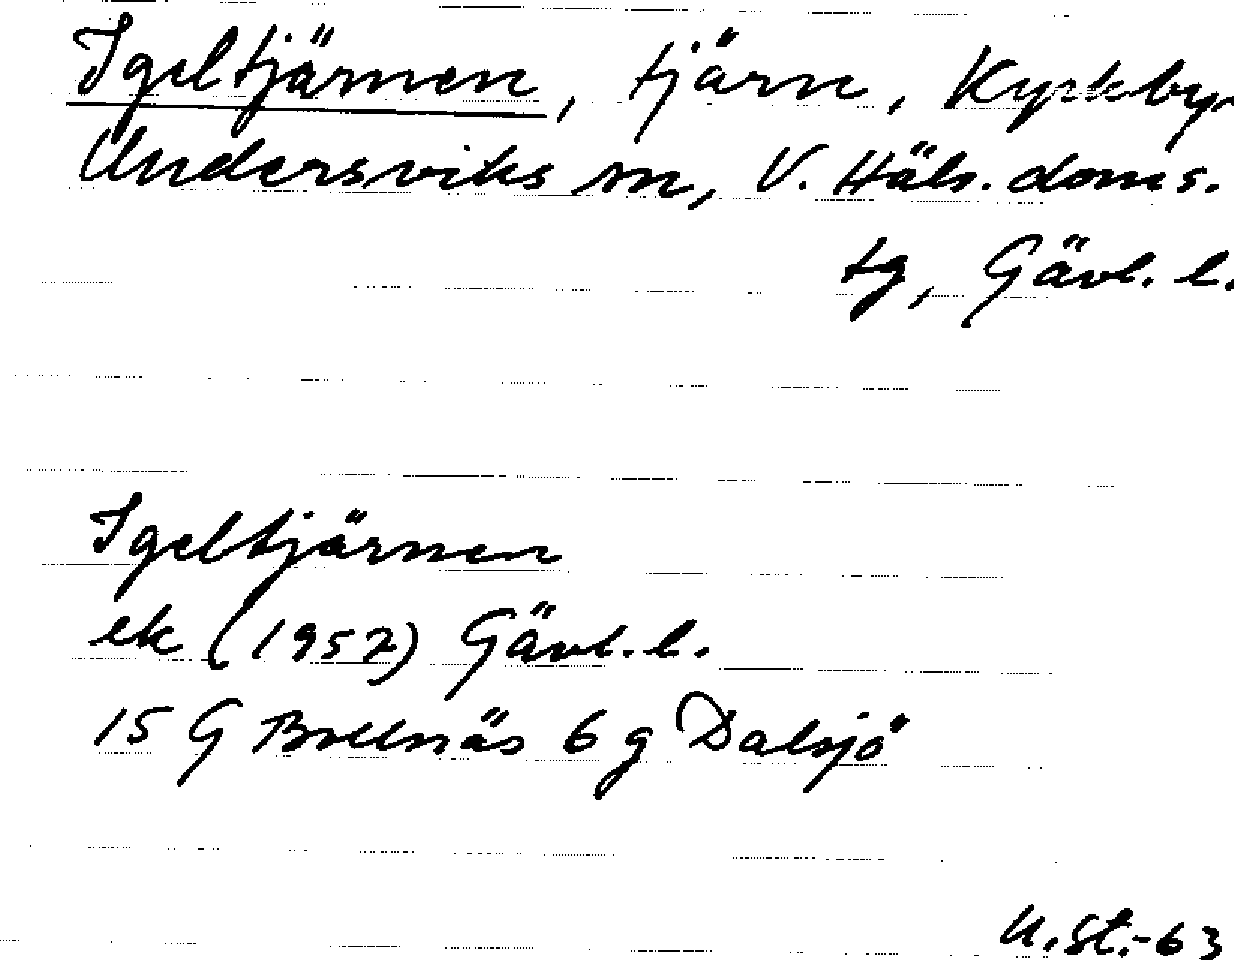 Igeltjärnen, tjärn, Kyrkby,
Undersviks sn, V. Häls. doms.
tg, Gävl. l.
Igeltjärnen
ek (1957) Gävl. l.
15 G Bollnäs 6 g Dalsjö
U. St.-63